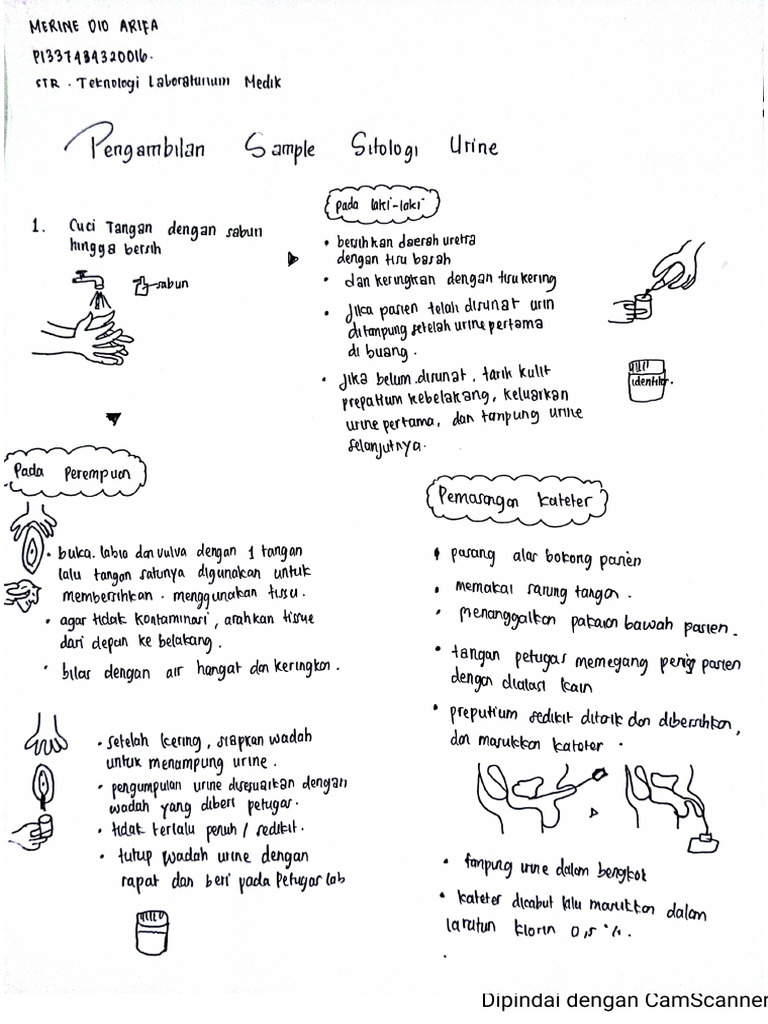 MERINE DIO ARIFA
P1337434320016.
STR. Teknologi Laboratorium Medik
Pengambilan Sample Sitologi Urine
1. Cuci Tangan dengan sabun
hingga bersih
sabun
pada laki-laki
• bersihkan daerah uretra
dengan tisu basah
• dan keringkan dengan tisu kering
• Jika pasien telah disunat urin
ditampung setelah urine pertama
di buang.
• Jika belum disunat, tarik kulit
prepatium kebelakang, keluarkan
urine pertama, dan tampung urine
selanjutnya.
identitas.
Pada Perempuan
• buka labia dan vulva dengan 1 tangan
lalu tangan satunya digunakan untuk
membersihkan. menggunakan tisu.
• agar tidak kontaminasi, arahkan tissue
dari depan ke belakang.
• bilas dengan air hangat dan keringkan.
• setelah kering, siapkan wadah
untuk menampung urine.
• pengumpulan urine disesuaikan dengan
wadah yang diberi petugas.
• tidak terlalu penuh / sedikit.
• tutup wadah urine dengan
rapat dan beri pada Petugas lab
Pemasangan Kateter
• pasang alas bokong pasien
• memakai sarung tangan.
• menanggalkan pakaian bawah pasien.
• tangan petugas memegang penis pasien
dengan dialasi kain
• preputium sedikit ditarik dan dibersihkan,
dan masukkan kateter.
• tampung urine dalam bengkok
• kateter dicabut lalu masukkan dalam
larutan klorin 0,5 %.
Dipindai dengan CamScanner